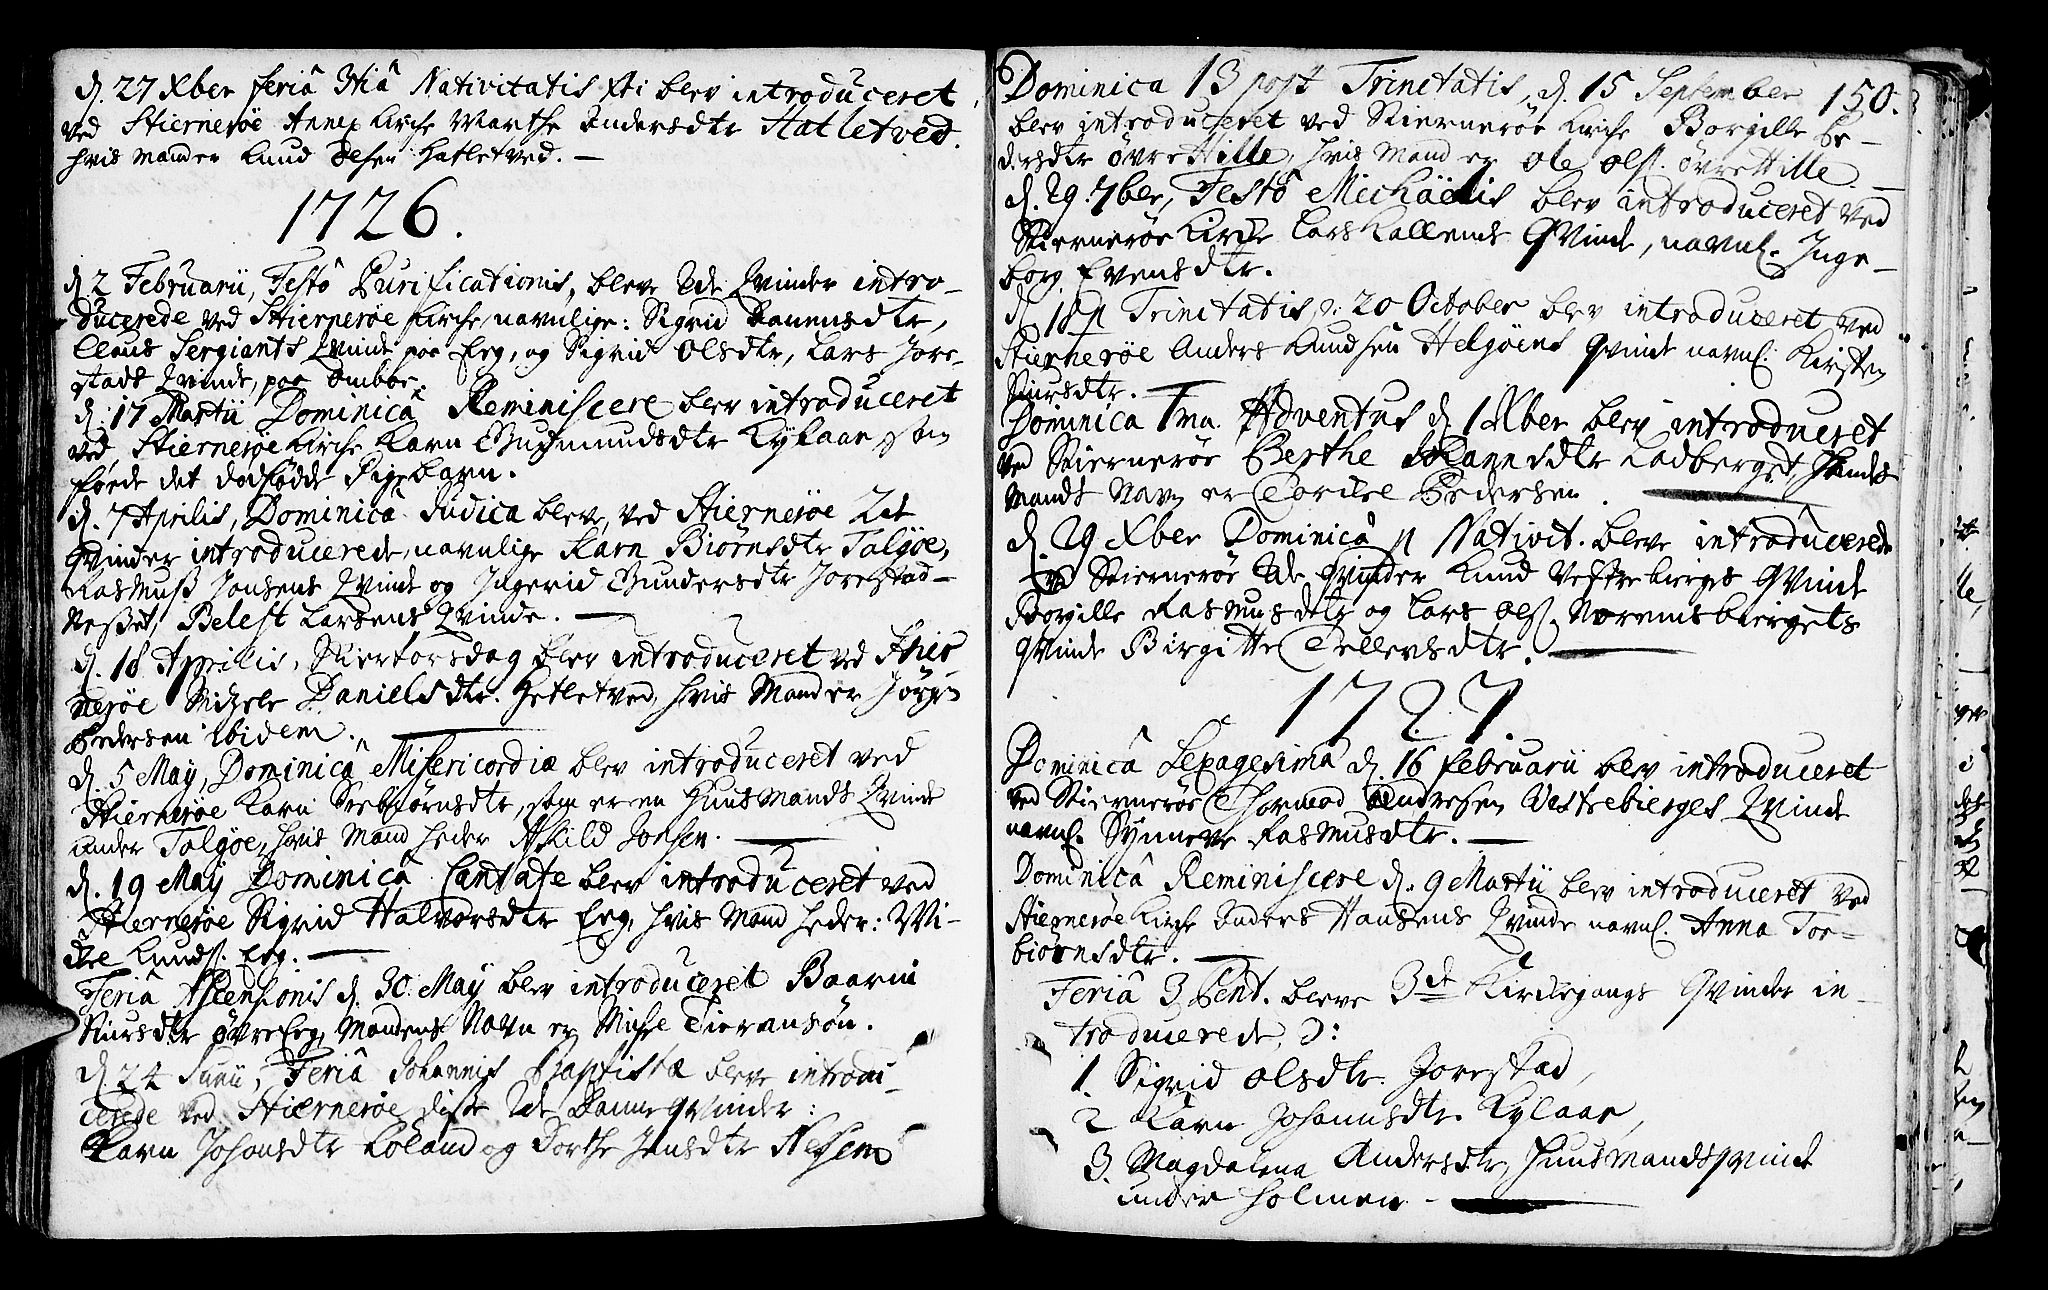 d. 27 Xber Feriâ 3tiâ Nativitatis Xti blev introduceret
ved Stiernerøe Annex Kirche Marthe Andersdtr Hatletved.
hvis Mand er Knud Olsen Hatletved. —
1726.
d. 2 Februarii, Festô Purificationis, bleve 2de Qvinder intro-
ducerede ved Stiernerøe Kirche, navnlige: Sigrid Banensdtr,
Claus Sergiants Qvinde paa Erg, og Sigrid Olsdtr, Lars Jore-
stads Qvinde, paa Omboe.
d. 17 Martii Dominicâ Reminiscere blev introduceret
ved Stiernerøe Kirche Karn Gudmundsdtr Kylaar, som
førde det dødfødde Pigebarn.
d. 7 Aprilis, Dominicâ Judica bleve, ved Stiernerøe 2de
Qvinder introducerede, navnlige Karn Biørnsdtr Talgøe,
Rasmus Jonsens Qvinde og Ingerid Gundersdtr Jorestad-
Neszet, Belest Larsens Qvinde. —
d. 18 Aprilis, Skiertorsdag blev introduceret ved Stier-
nerøe Daniels dtr. Hetletved, hvis Mand er Jørgen
Pedersen ibidem. —
d. 5 May, Dominicâ Misericordiæ blev introduceret ved
Stiernerøe Karn Sebiørnsdtr, som er en Huusmands Qvinde
under Talgøe, hvis Mand heder Askild Jonsen. —
d. 19 May Dominicâ Cantate blev introduceret ved
Stiernerøe Sigrid Halvorsdtr Erg, hvis Mand heder: Wi-
Knuds. Erg. —
Feriâ Ascensionis d. 30 May blev introduceret Baarni
Siursdtr øvre Erg, Mandens Navn er
d. 24 Junii, Feriâ Johannis Baptistæ bleve introdu-
cerede ved Stiernerøe, disse 2de Qvinder:
Karn Johansdtr Løland og Dorthe Jensdtr
Dominica 13 post Trinitatis, d. 15 September 150.
blev introduceret ved Stiernerøe Kirche Borgille Pe-
dersdtr øvre Hille, hvis Mand er Ole Ols. øvre Hille. —
d. 29. 7ber, Festô Michäelis blev introduceret ved
Stiernerøe Kirche Lars Qvinde, navnl. Inge-
borg Evensdtr.
d. 18 p Trinitatis, ɔ: 20 October blev introduceret ved
Stiernerøe Anders Knudsen Helgøens Qvinde navnl. Kirsten
Siursdtr. —
Dominica 1ma. Adventus d. 1 Xber blev introduceret
ved Stiernerøe Berthe dtr Ladberget, hendes
Mands Navn er Pedersen. —
d. 29 Xber Dominicâ p Nativit. bleve introducerede
ved Stiernerøe 2de Qvinder Knud Vestrebierges Qvinde
Borgille Rasmusdtr og Lars Ols. Norensbiergets
Qvinde Birgitte Tellevsdtr. —
1727
Dominicâ Sexagesima d. 16 Februarii blev introduceret
ved Stiernerøe Thormod Andresen Vestrebierges Qvinde
navnl. Synneve Rasmusdtr. —
Dominicâ Reminiscere d. 9 Martii blev introduceret ved
Stiernerøe Kirche Anders Hansens Qvinde navnl. Anna Tor-
biørnsdtr. —
Feriâ 3 Pent. bleve 3de Kirchegangs Qvinder in-
troducerede, ɔ:
1. Sigrid Olsdtr. Jorestad,
2 Karn Johannsdtr. Kylaar,
3. Magdalena Andersdtr, Huusmandsqvinde
under Holmen —